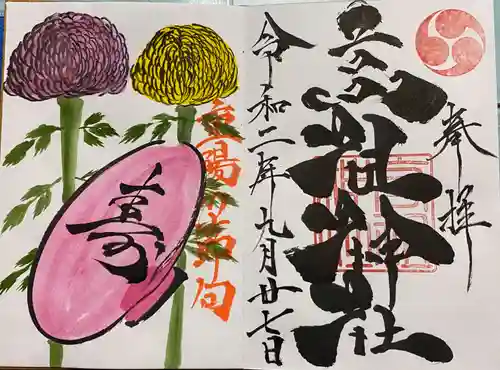 奉拝
神社
令和二年九月廿七日
重陽の節句
寿